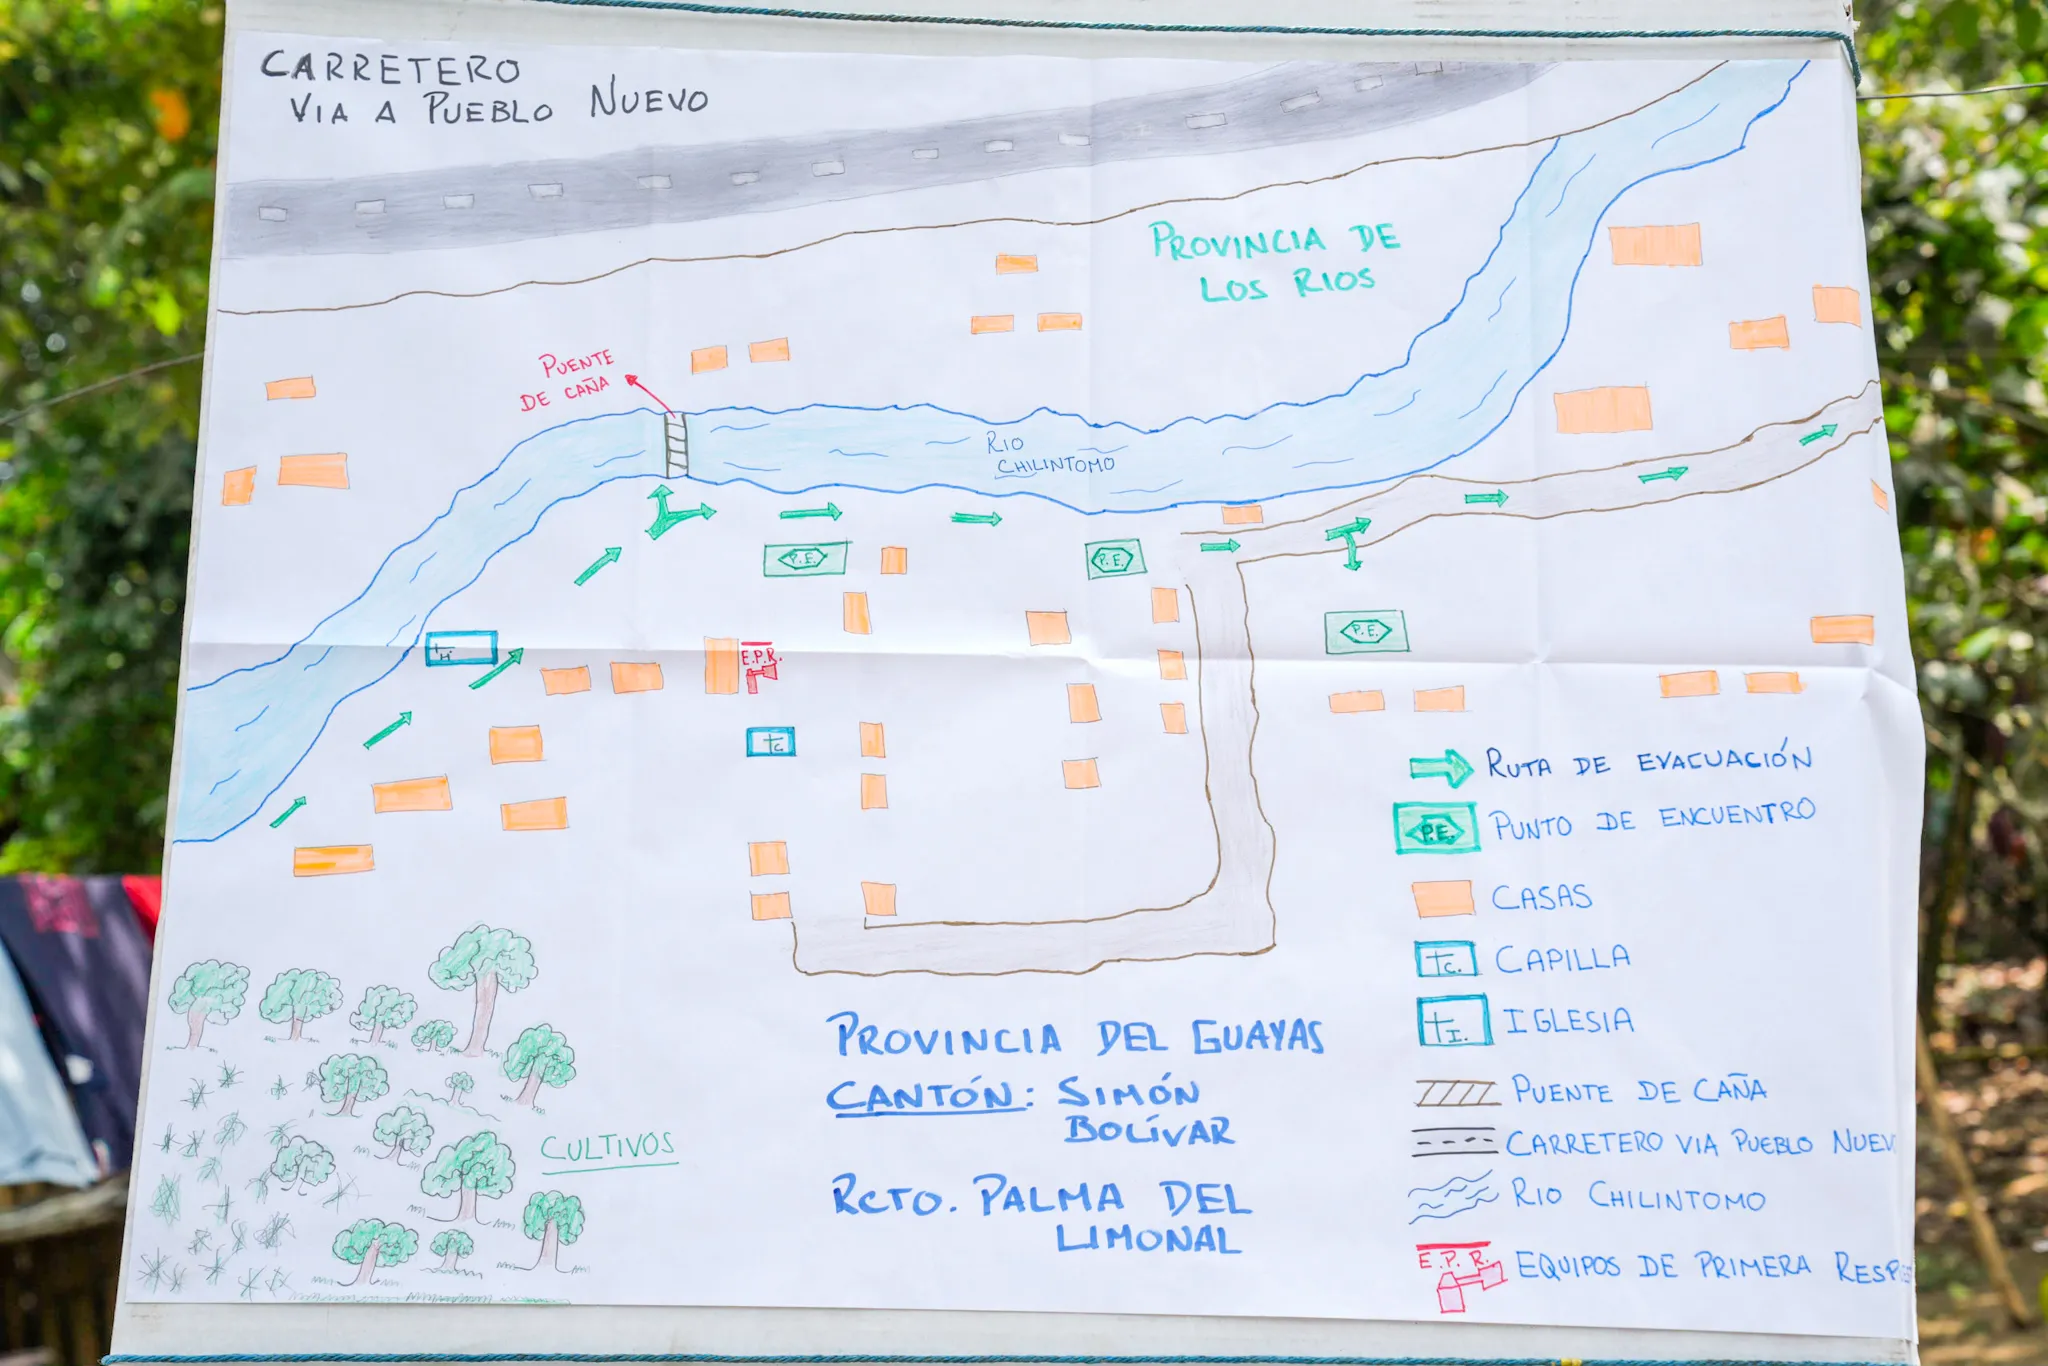 CARRETERO
VIA A PUEBLO NUEVO
PROVINCIA DE
LOS RIOS
PUENTE
DE CAÑA
RIO
CHILINTOMO
P.E.
P.E.
P.E.
H
E.P.R.
C.
RUTA DE EVACUACIÓN
P.E. PUNTO DE ENCUENTRO
CASAS
C. CAPILLA
I. IGLESIA
PUENTE DE CAÑA
CARRETERO VIA PUEBLO NUEV
RIO CHILINTOMO
E.P.R. EQUIPOS DE PRIMERA RESP
PROVINCIA DEL GUAYAS
CANTÓN: SIMÓN
BOLÍVAR
RCTO. PALMA DEL
LIMONAL
CULTIVOS